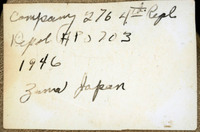 Company 276 4th Repl
Depot APO 703
1946
Zama Japan